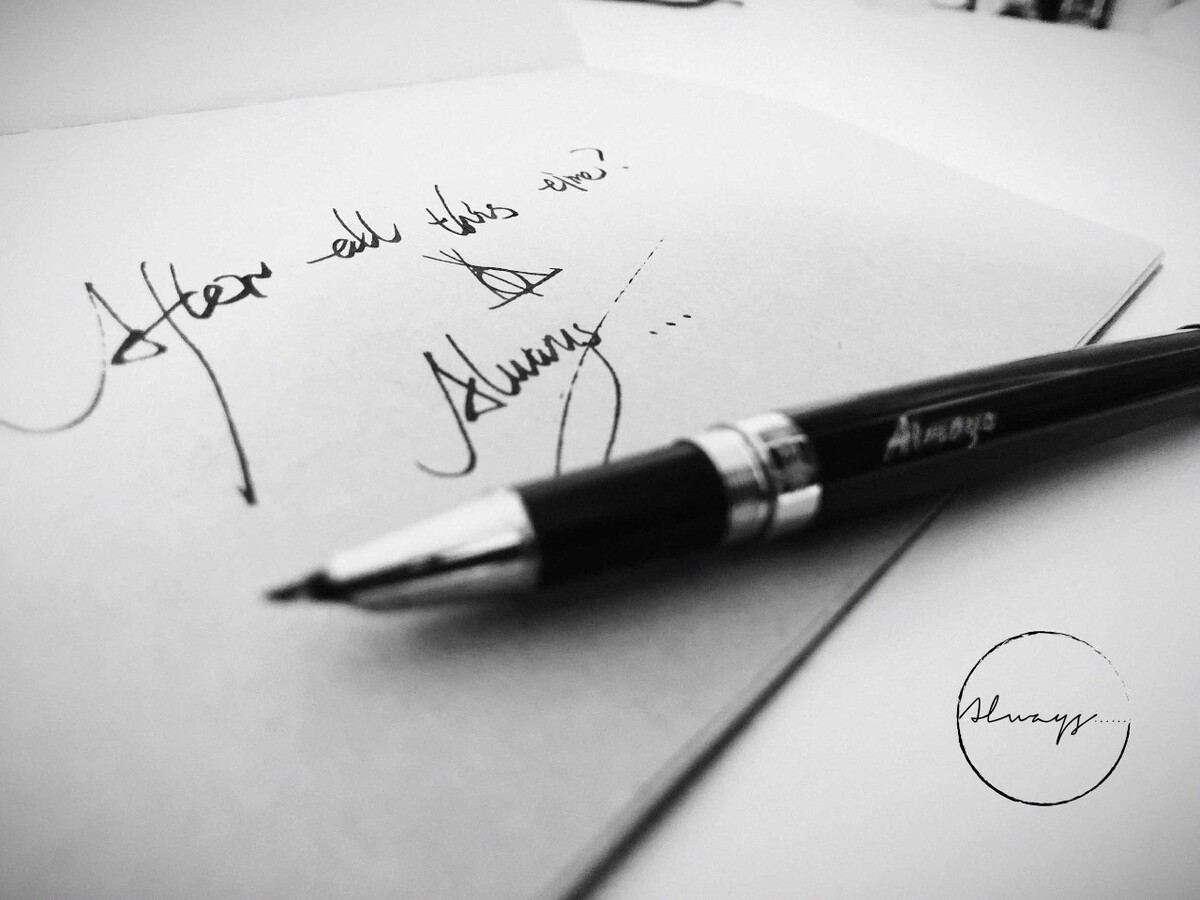 After all this time?
Always...
Always
Always......